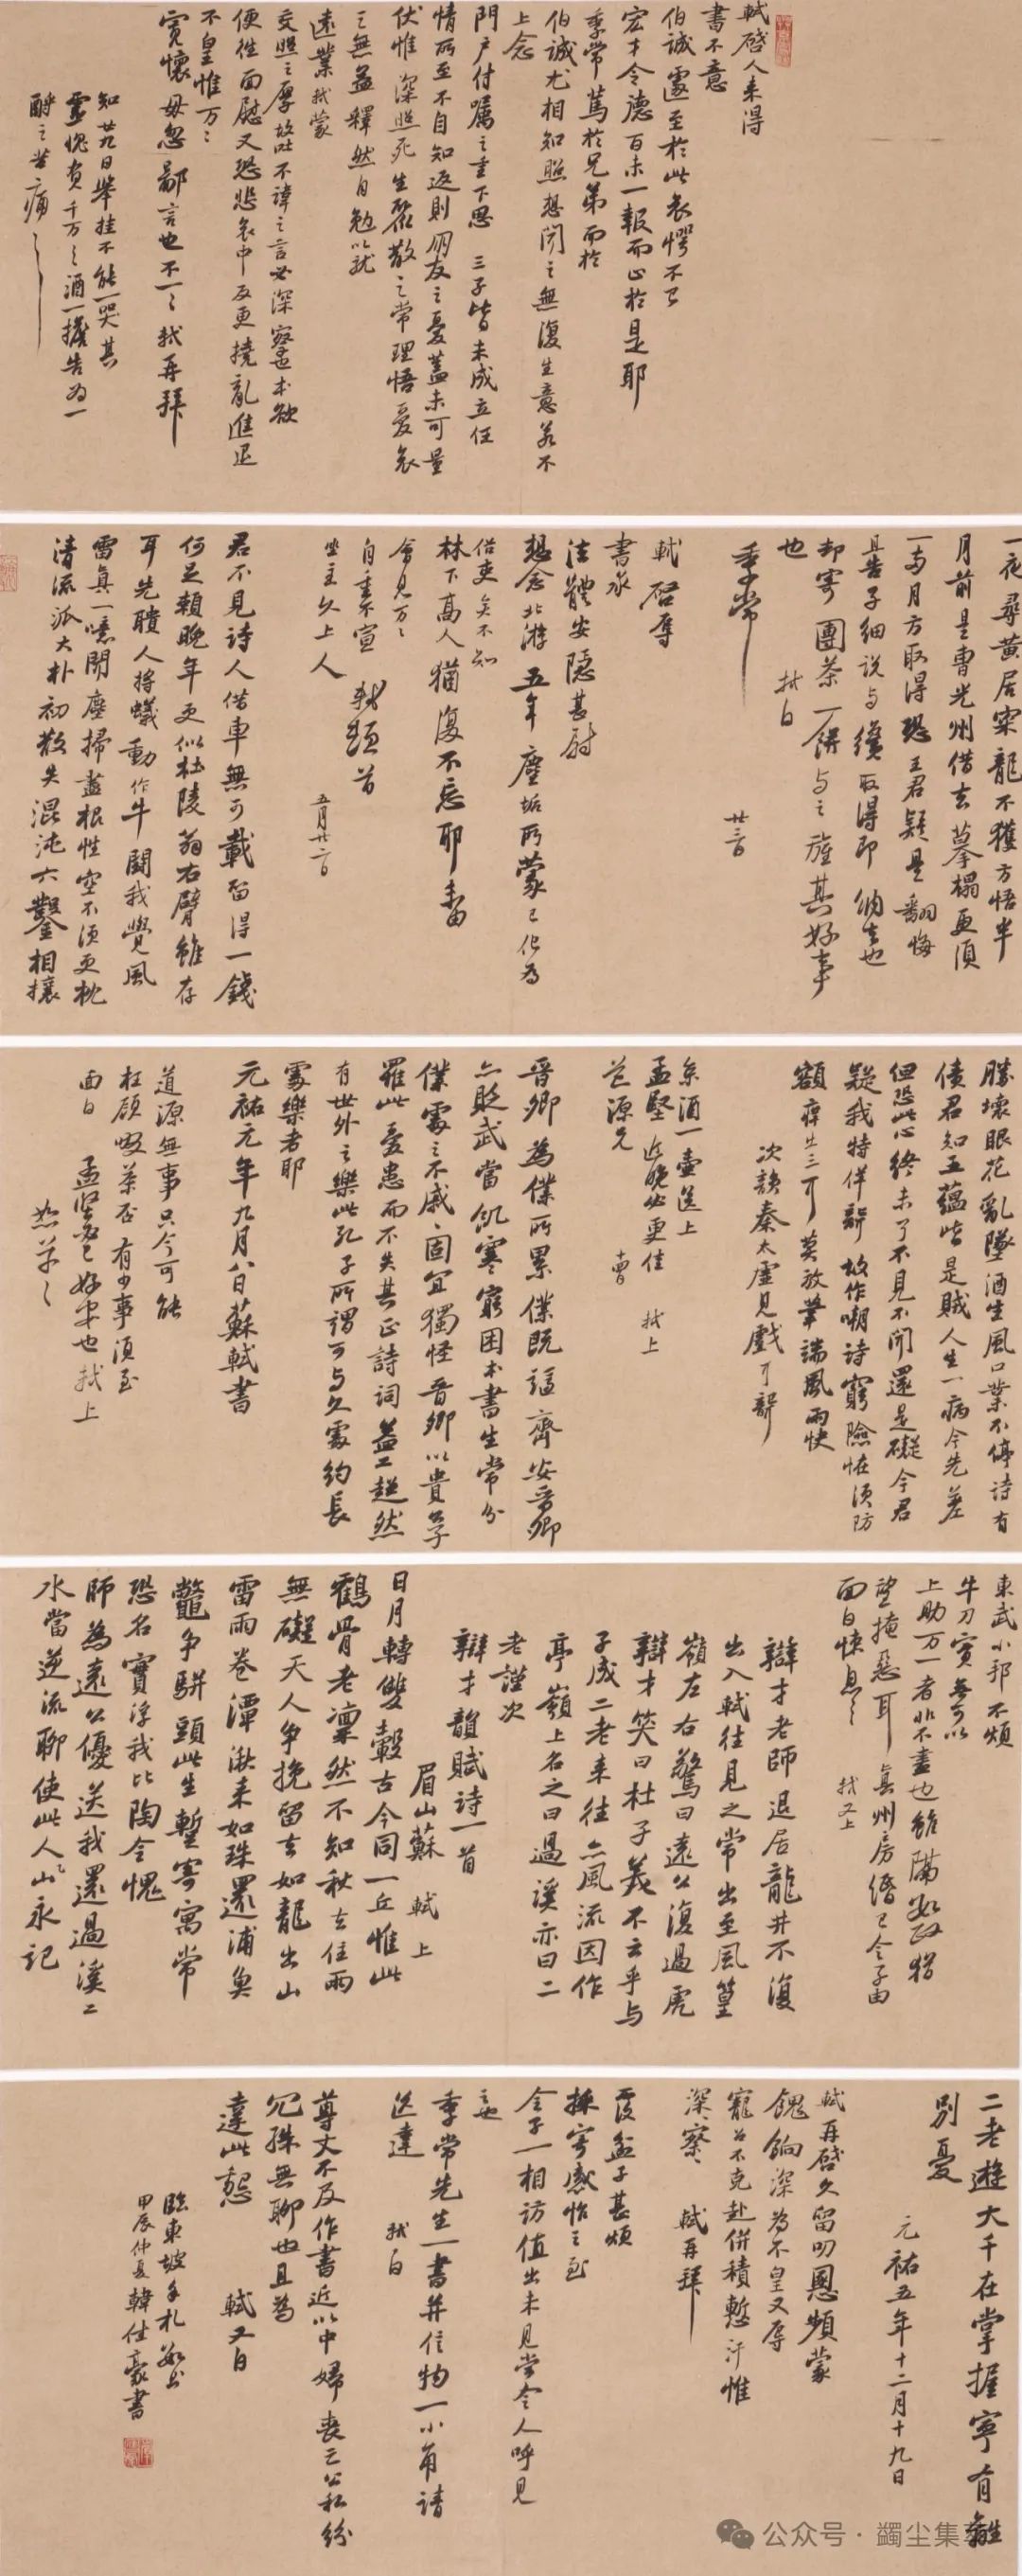 軾啓人來得
書不意
伯誠遽至於此哀愕不已
宏才令德百未一報而止於是耶
季常篤於兄弟而於
伯誠尤相知照想聞之無復生意若不
上念
門户付囑之重下思三子皆未成立任
情所至不自知返則朋友之憂蓋未可量
伏惟深照死生聚散之常理悟憂哀
之無益釋然自勉以就
遠業軾蒙
交照之厚故吐不諱之言必深察也本欲
便往面慰又恐悲哀中反更撓亂進退
不皇惟万万
寬懷毋忽鄙言也不一一軾再拜
知廿九日舉挂不能一哭其
靈愧負千万千万酒一擔告為一
酹之苦痛苦痛
一夜尋黃居寀龍不獲方悟半
月前是曹光州借去摹搨更須
一兩月方取得恐王君疑是翻悔
且告子細説与纔取得即納去也
却寄團茶一餅与之旌其好事
也
軾白
季常
廿三日
軾啓辱
書承
法體安隱甚慰
想念北游五年塵垢所蒙已化為
俗吏矣不知
林下高人猶復不忘耶未由
會見万万
自重不宣軾頓首
坐主久上人
五月廿二日
君不見詩人借車無可載留得一錢
何足賴晚年更似杜陵翁右臂雖存
耳先聵人將蟻動作牛鬪我覺風
雷真一噫聞塵掃盡根性空不須更枕
清流派大朴初散失混沌六鑿相攘
勝壞眼花亂墜酒生風口業不停詩有
債君知五藴皆是賊人生一病今先差
但恐此心終未了不見不聞還是礙今君
疑我特佯聾故作嘲詩窮險怪須防
額痒出三耳莫放筆端風雨快
次韻秦太虛見戲耳聾
糸酒一壷送上
孟堅近晚必更佳軾上
道源兄
十四日
晉卿為僕所累僕既謫齊安晉卿
亦貶武當飢寒窮困本書生常分
僕處之不戚戚固宜獨怪晉卿以貴公子
罹此憂患而不失其正詩詞益工超然
有世外之樂此孔子所謂可与久處約長
處樂者耶
元祐元年九月八日蘇軾書
道源無事只今可能
枉顧啜茶否有少事須至
面白孟堅必已好安也軾上
恕草草
東武小邦不煩
牛刀實無可以
上助万一者非不盡也雖隔數政猶
望掩惡耳真州房緡已令子由
面白悚息悚息軾又上
辯才老師退居龍井不復
出入軾往見之常出至風篁
嶺左右驚曰遠公復過虎溪矣
辯才笑曰杜子美不云乎與
子成二老來往亦風流因作
亭嶺上名之曰過溪亦曰二
老謹次
辯才韻賦詩一首
眉山蘇軾上
日月轉雙轂古今同一丘惟此
鶴骨老凜然不知秋去住兩
無礙天人爭挽留去如龍出山
雷雨卷潭湫來如珠還浦魚
鼈爭駢頭此生暫寄寓常
恐名實浮我比陶令愧
師為遠公優送我還過溪溪
水當逆流聊使此人山永記
二老遊大千在掌握寧有離
別憂
元祐五年十二月十九日
軾再啓久留叨恩頻蒙
餽餉深為不皇又辱
寵召不克赴併積慙汗惟
深察深察軾再拜
覆盆子甚煩
採寄感怍之至
令子一相訪值出未見當令人呼見
之也
季常先生一書并信物一小角請
送達軾白
尊丈不及作書近以中婦喪亡公私紛
冗殊無聊也且為
達此懇軾又白
臨東坡手札數帖
甲辰仲夏韓仕豪書
公众号·蠲尘集